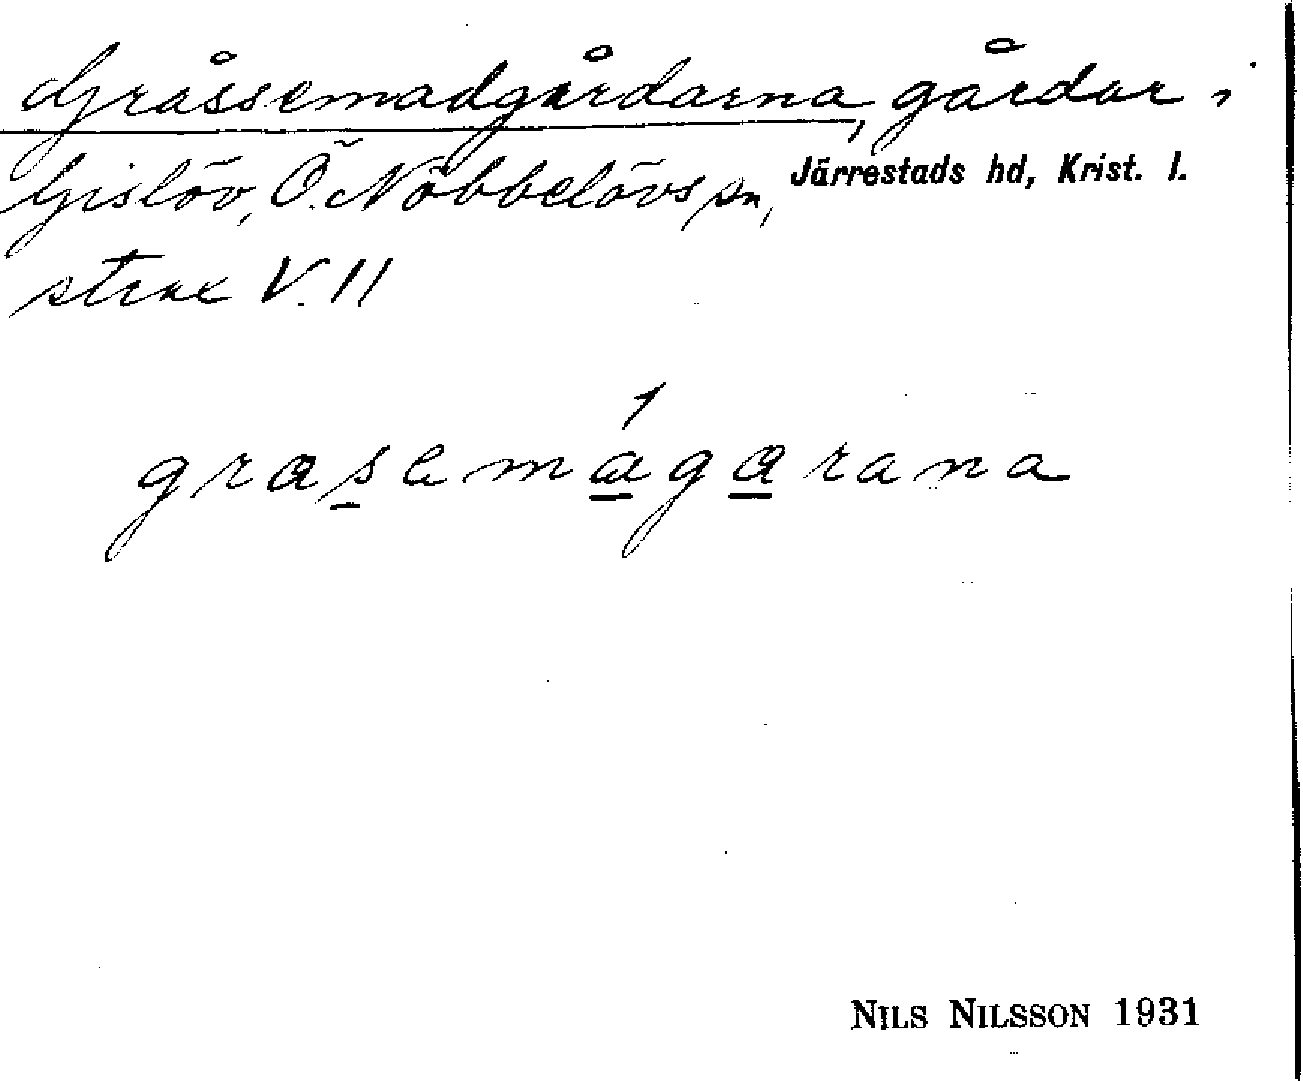 Gråssemadgårdarna, gårdar i
Gislöv, Ö. Nöbbelövs sn, Järrestads hd, Krist. l.
strax V. 11
grasemagarana
NILS NILSSON 1931